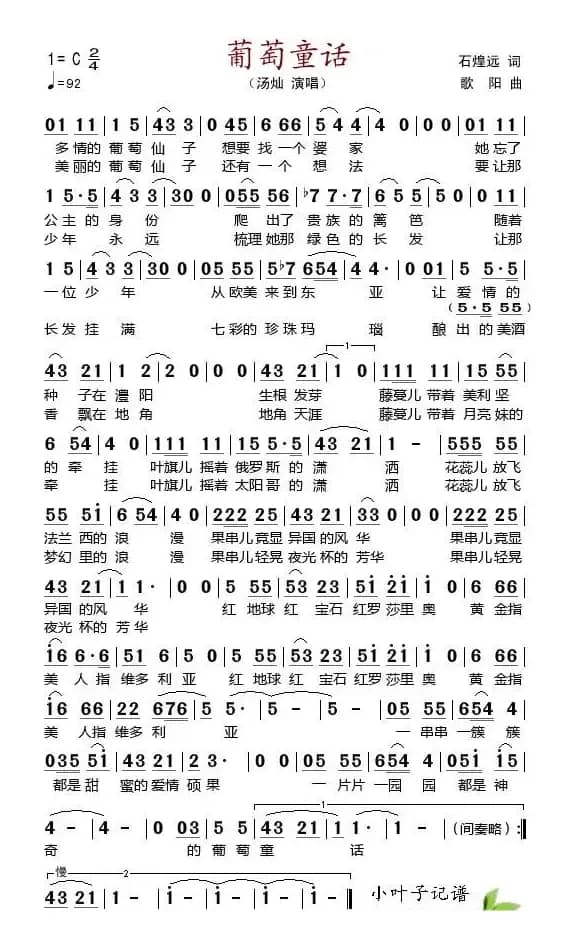 葡萄童话
1=C 2/4
♩=92
(汤灿 演唱)
石煌远 词
歌 阳 曲
01 11 | 1 5 | 43 3 | 0 45 | 6 66 | 5 4 4 | 4 0 | 0 0 | 01 11 |
多情的 葡萄 仙子 想要 找一个 婆 家 她忘了
美丽的 葡萄 仙子 还有 一个 想 法 要让那
1 5·5 | 4 3 3 | 30 0 | 0 55 56 | ♭7 7·7 | 6 5 5 | 50 0 | 0 11 |
公主的 身 份 爬 出了 贵 族的 篱 笆 随着
少年 永 远 梳理她那 绿色的 长 发 让那
1 5 | 4 3 3 | 30 0 | 05 55 | 5 ♭7 | 7 654 | 4 4· | 0 01 | 5 5·5 |
一位 少 年 从欧美 来到 东 亚 让 爱情的
(5·5 55)
长发 挂 满 七彩的 珍珠 玛 瑙 酿 出的美酒
43 21 | 1 2 | 2 0 | 0 0 | 43 21 | 1 0 | 111 11 | 15 55 |
种 子在 澧阳 生根 发芽 藤蔓儿 带着 美利 坚
香 飘在 地角 地角 天涯 藤蔓儿 带着 月亮 妹的
6 54 | 4 0 | 111 11 | 15 5·5 | 43 21 | 1 - | 555 55 |
的 牵 挂 叶旗儿 摇着 俄罗 斯的 潇 洒 花蕊儿 放飞
牵 挂 叶旗儿 摇着 太阳 哥的 潇 洒 花蕊儿 放飞
55 51 | 6 54 | 4 0 | 222 25 | 43 21 | 33 0 | 0 0 | 222 25 |
法兰 西的 浪 漫 果串儿 竞显 异国 的风 华 果串儿 竞显
梦幻 里的 浪 漫 果串儿 轻晃 夜光 杯的 芳华 果串儿 轻晃
43 21 | 1 1· | 0 0 | 5 55 | 53 55 | 51 21 | 1 0 | 6 66 |
异国 的风 华 红 地球 红 宝石 红罗 莎里 奥 黄 金指
夜光 杯的 芳华
16 6·6 | 51 6 | 5 0 | 5 55 | 53 55 | 51 21 | 1 0 | 6 66 |
美 人指 维多 利 亚 红 地球 红 宝石 红罗 莎里 奥 黄 金指
16 66 | 22 676 | 5 - | 5 - | 5 - | 05 55 | 654 4 |
美 人指 维多 利 亚 一 串串 一簇 簇
035 51 | 43 21 | 23· | 0 0 | 05 55 | 43 21 | 055 51 |
都是 甜 蜜的 爱情 硕 果 一 片片 一园 园 都是 神
4 - | 4 - | 0 03 | 5 5 | 43 21 | 1 1· | 1 - | (间奏略) :||
奇 的 葡萄 童 话
慢
43 21 | 1 - | 1 - | 1 - | 1 0 ||
小叶子记谱